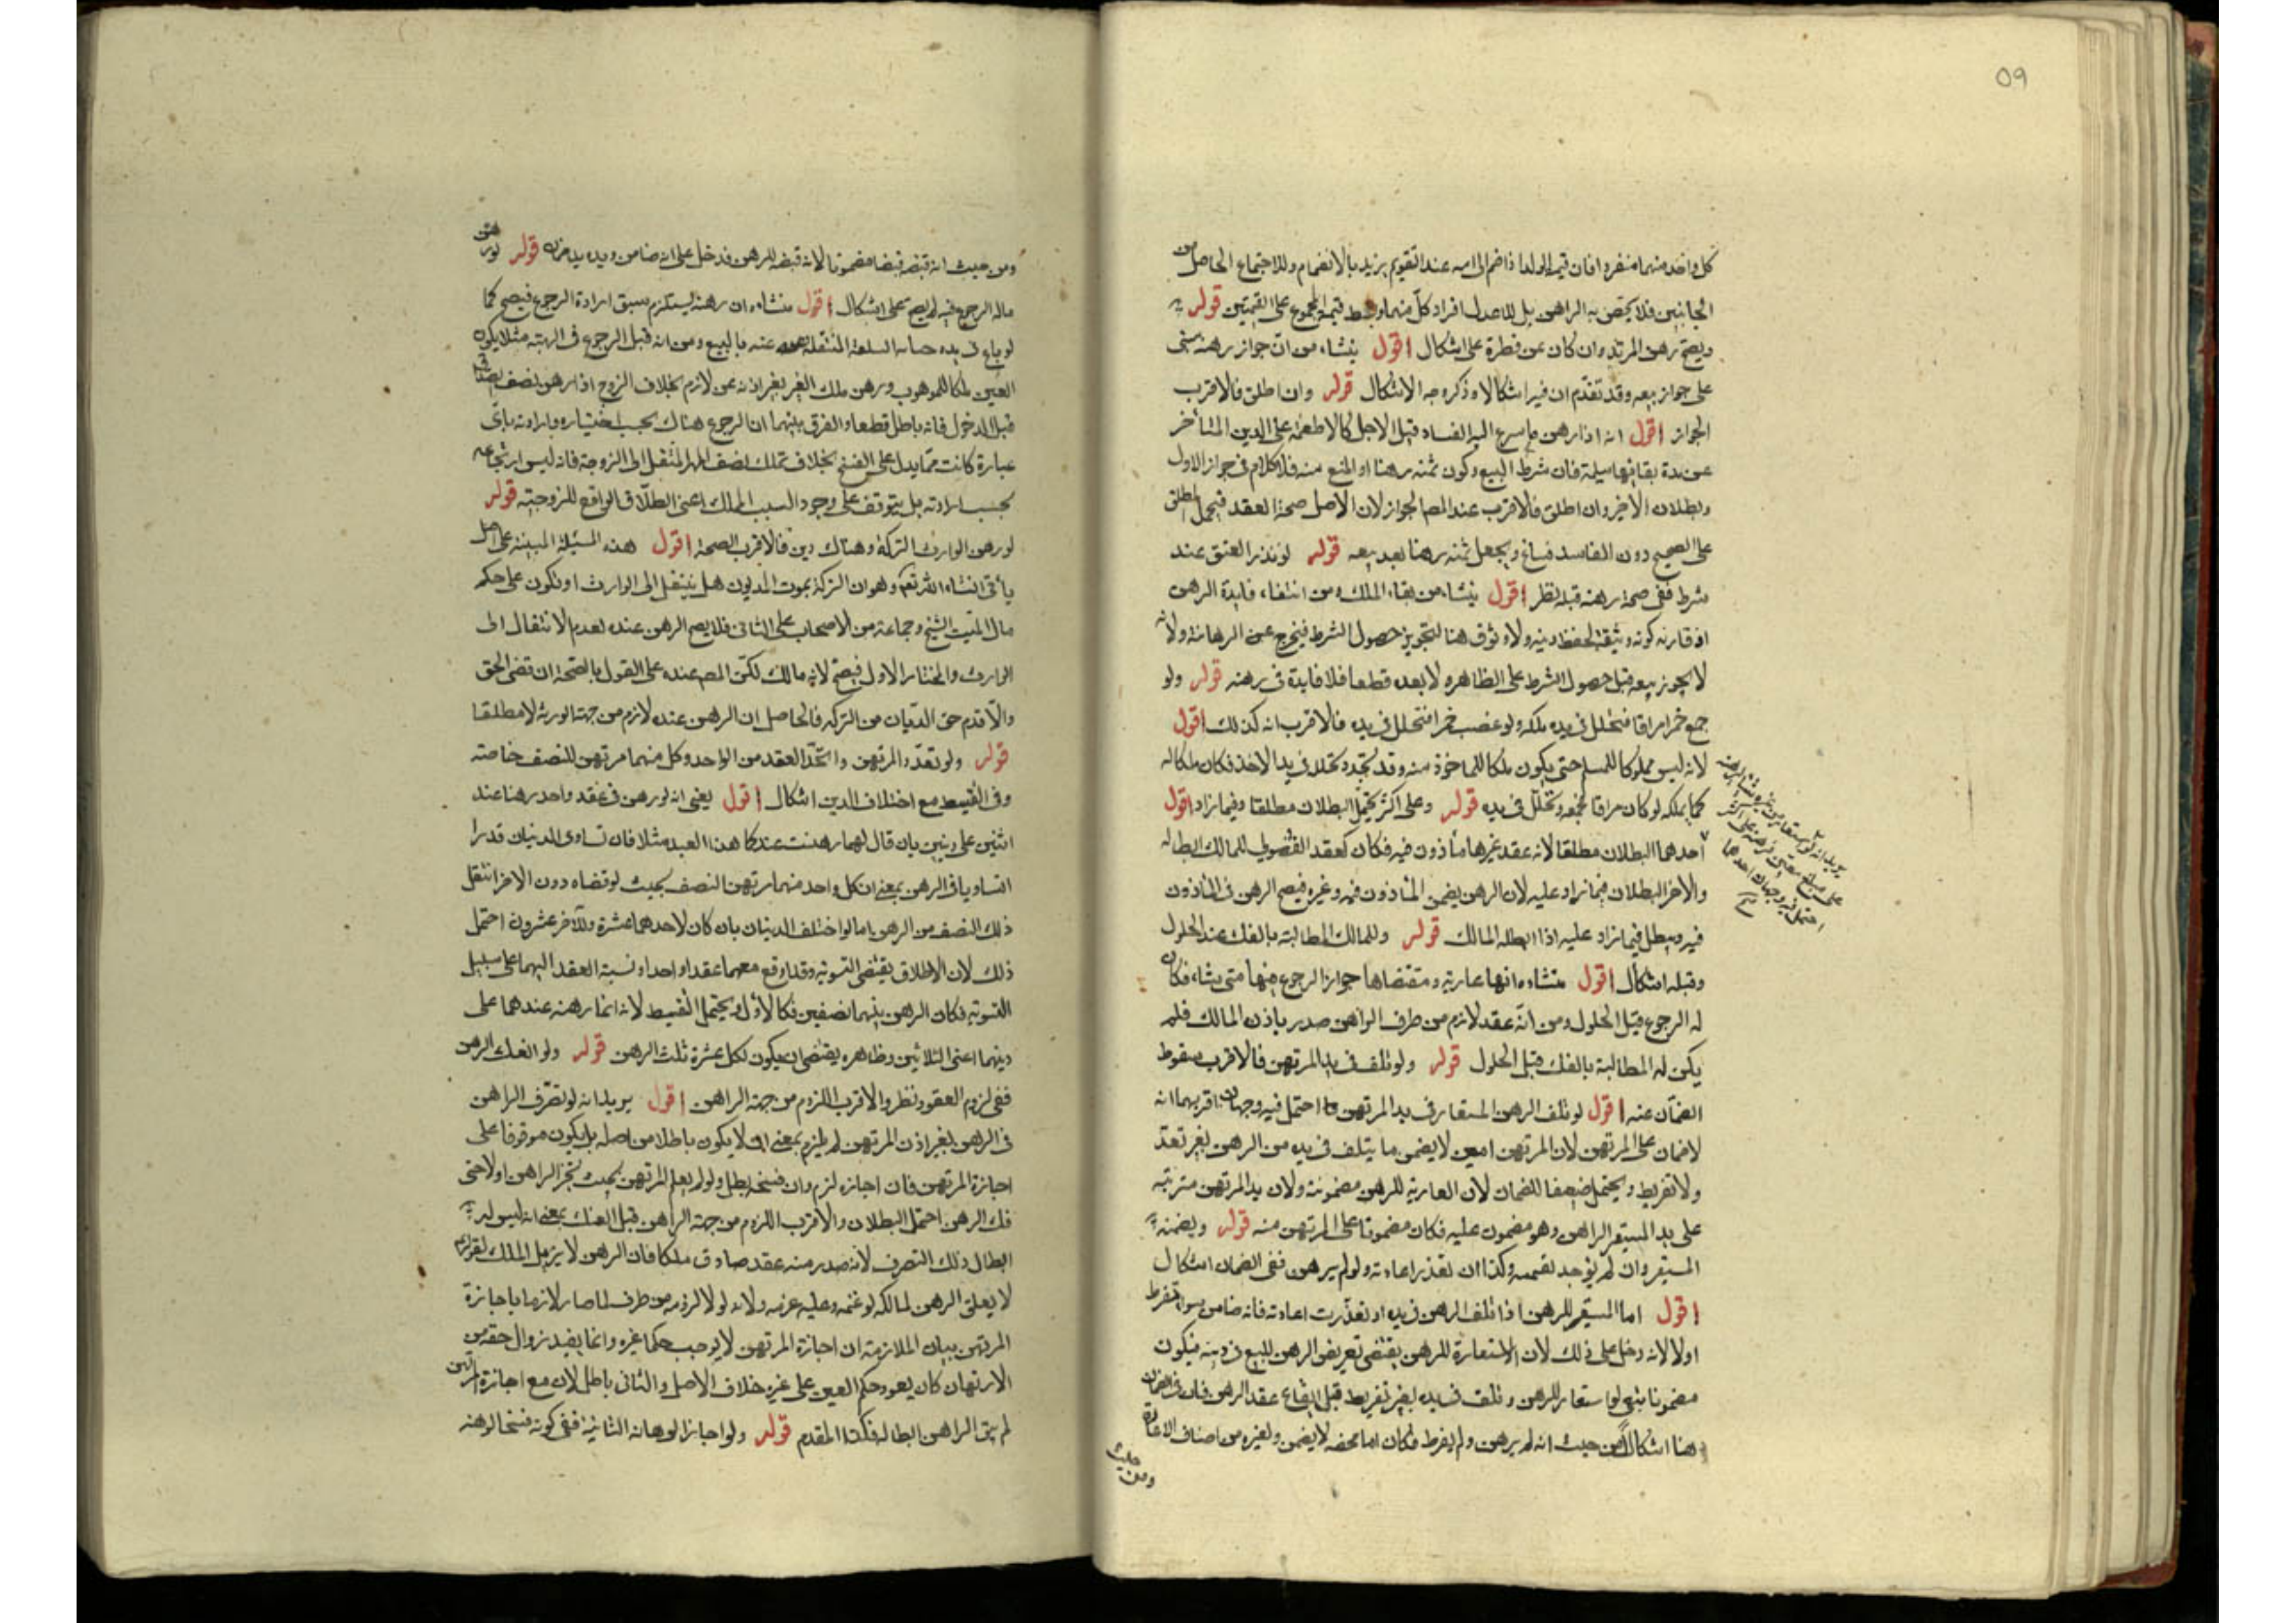 ٥٩
كل واحد منهما منفردا فان قيمة الولد اذا ضم الى امه عند التقويم يزيد بالانضمام وللاجتماع الحاصل من
الجانبين فلا يختص به الراهن بل للاصل افراد كل منهما وبسط قيمة المجموع على القيمتين قوله
ويصح رهن المرتد وان كان عن فطرة على اشكال اقول ينشاء من ان جواز رهنه مبني
على جواز بيعه وقد تقدم ان فيه اشكالا وذكر وجه الاشكال قوله وان اطلق فالاقرب
الجواز اقول انه اذا رهن ما يسرع اليه الفساد قبل الاجل كالاطعمة على الدين المتأخر
عن مدة بقائها سليمة فان شرط البيع وكون ثمنه رهنا او المنع منه فلا كلام في جواز الاول
وبطلان الاخير وان اطلق فالاقرب عند المص الجواز لان الاصل صحة العقد فيحمل المطلق
على الصحيح دون الفاسد فساغ ويجعل ثمنه رهنا بعد بيعه قوله لو نذر العتق عند
شرط ففي صحة رهنه قبله نظر اقول ينشاء من بقاء الملك ومن انتفاء فايدة الرهن
اذ فايدته كونه وثيقة لحفظ دينه ولا وثوق هنا لتجويز حصول الشرط فيخرج عن الرهانة ولانه
لا يجوز بيعه قبل حصول الشرط على الظاهر ولا بعده قطعا فلا فايدة في رهنه قوله ولو
جمع خمرا مراقا فتخلل في يده ملكه ولو غصب خمرا فتخلل في يده فالاقرب انه كذلك اقول
لانه ليس مملوكا للمسلم حتى يكون ملكا للماخوذ منه وقد تجدد تخللا في يد الاخذ فكان ملكا له
كما يملكه لو كان مراقا فجمعه وتخلل في يده قوله وعلى اكثر يحتمل البطلان مطلقا وفيما زاد اقول
احدهما البطلان مطلقا لانه عقد غير مأذون فيه فكان كعقد الفضولي للمالك ابطاله
والاخر البطلان فيما زاد عليه لان الرهن يضمن المأذون فيه وغيره فيصح الرهن في المأذون
فيه ويبطل فيما زاد عليه اذا ابطله المالك قوله وللمالك المطالبة بالفك عند الحلول
وقبله اشكال اقول منشاءه انها عارية ومقتضاها جواز الرجوع فيها متى شاء فكان
له الرجوع قبل الحلول ومن انه عقد لازم من طرف الراهن صدر باذن المالك فلم
يكن له المطالبة بالفك قبل الحلول قوله ولو تلف في يد المرتهن فالاقرب سقوط
الضمان عنه اقول لو تلف الرهن المستعار في يد المرتهن احتمل فيه وجهان اقربهما انه
لا ضمان على المرتهن لان المرتهن امين لا يضمن ما يتلف في يده من الرهن بغير تعد
ولا تفريط ويحتمل ضعيفا الضمان لان العارية للرهن مضمونة ولان يد المرتهن مترتبة
على يد المستعير الراهن وهو مضمون عليه فكان مضمونا على المرتهن منه قوله ويضمنه
المستعير وان لم يوجد تقصير وكذا ان تعذر اعادته ولو لم يرهن ففي الضمان اشكال
اقول اما المستعير للرهن اذا تلف الرهن في يده او تعذرت اعادته فانه ضامن سواء فرط
اولا لانه دخل على ذلك لان الاستعارة للرهن يقتضي تعريض الرهن للبيع في دينه فيكون
مضمونا لو استعار للرهن وتلف في يده بغير تفريط قبل ايقاع عقد الرهن فان في الضمان
هنا اشكالا من حيث انه لم يرهن ولم يفرط فكان امانة محضة لا يضمن ولغيره من اصناف الاعارة
ومن حيث
احتمل فيه وجهان احدهما
ومن حيث انه قبضه قبضا مضمونا لانه قبضه للرهن فدخل على انه ضامن ويده يد قوله لو رهن
ماله الرجوع فيه لم يصح على اشكال اقول منشاءه ان رهنه يستلزم سبق ارادة الرجوع فيصح كما
لو باع في يده السلعة المنتقلة عنه بالبيع ومن انه قبل الرجوع في الهبة مثلا يكون
العين ملكا للموهوب ورهن ملك الغير بغير اذنه غير لازم بخلاف الزوج اذا رهن نصف الصداق
قبل الدخول فانه باطل قطعا والفرق بينهما ان الرجوع هناك بحسب اختياره وارادته باي
عبارة كانت مما يدل على الفسخ بخلاف تملك نصف المهر المنتقل الى الزوجة فانه ليس ارتجاعه
بحسب ارادته بل يتوقف على وجود السبب المملك اعني الطلاق الواقع للزوجة قوله
لو رهن الوارث التركة وهناك دين فالاقرب الصحة اقول هذه المسئلة المبينة على اصل
يأتي انشاء الله تعالى وهو ان التركة بموت المديون هل ينتقل الى الوارث او تكون على حكم
مال الميت الشيخ وجماعة من الاصحاب على الثاني فلا يصح الرهن عنده لعدم الانتقال الى
الوارث والمختار الاول فيصح لانه مالك لكن المص عنده على القول بالصحة ان قضى الحق
والا قدم حق الديان من التركة فالحاصل ان الرهن عنده لازم من جهة الورثة لا مطلقا
قوله ولو تعدد المرتهن واتحد العقد من الواحد وكل منهما مرتهن للنصف خاصة
وفي التقسيط مع اختلاف الدين اشكال اقول يعني انه لو رهن في عقد واحد رهنا عند
اثنين على دينين بان قال لهما رهنت عندكما هذا العبد مثلا فان تساوى الدينان قدرا
تساويا في الرهن بمعنى ان كل واحد منهما مرتهن النصف بحيث لو قضاه دون الاخر انتقل
ذلك النصف من الرهن اما لو اختلف الدينان بان كان لاحدهما عشرة وللاخر عشرون احتمل
ذلك لان الاطلاق يقتضي التسوية وقد اوقع معهما عقدا واحدا ونسبة العقد اليهما على سبيل
التسوية فكان الرهن بينهما نصفين فكالاول ويحتمل التقسيط لانه انما رهنه عندهما على
دينهما اعني الثلاثين وظاهره يقتضي ان يكون لكل عشرة ثلث الرهن قوله ولو انفك الرهن
ففي لزوم العقود نظر والاقرب اللزوم من جهة الراهن اقول يريد انه لو تصرف الراهن
في الرهن بغير اذن المرتهن لم يلزم بمعنى انه لا يكون باطلا من اصله بل يكون موقوفا على
اجازة المرتهن فان اجازه لزم وان فسخه بطل ولو لم يعلم المرتهن بحيث يجيز الراهن اولا حتى
فك الرهن احتمل البطلان والاقرب اللزوم من جهة الراهن قبل الفك بمعنى انه ليس له
ابطال ذلك التصرف لانه صدر منه عقد صادف ملكا فان الرهن لا يزيل الملك لقوله
لا يغلق الرهن لمالكه غنمه وعليه غرمه ولانه لولا لزومه من طرفه لما صار لازما باجازة
المرتهن بيان الملازمة ان اجازة المرتهن لا يوجب حكما لغيره وانما يفيد زوال حقه من
الارتهان كان يعود حكم العين على غيره خلاف الاصل والثاني باطل لان مع اجازة المرتهن
لم يبق الراهن ابطاله فكذا المقدم قوله ولو اجاز الرهانة الثانية ففي كونه فسخا لرهنه